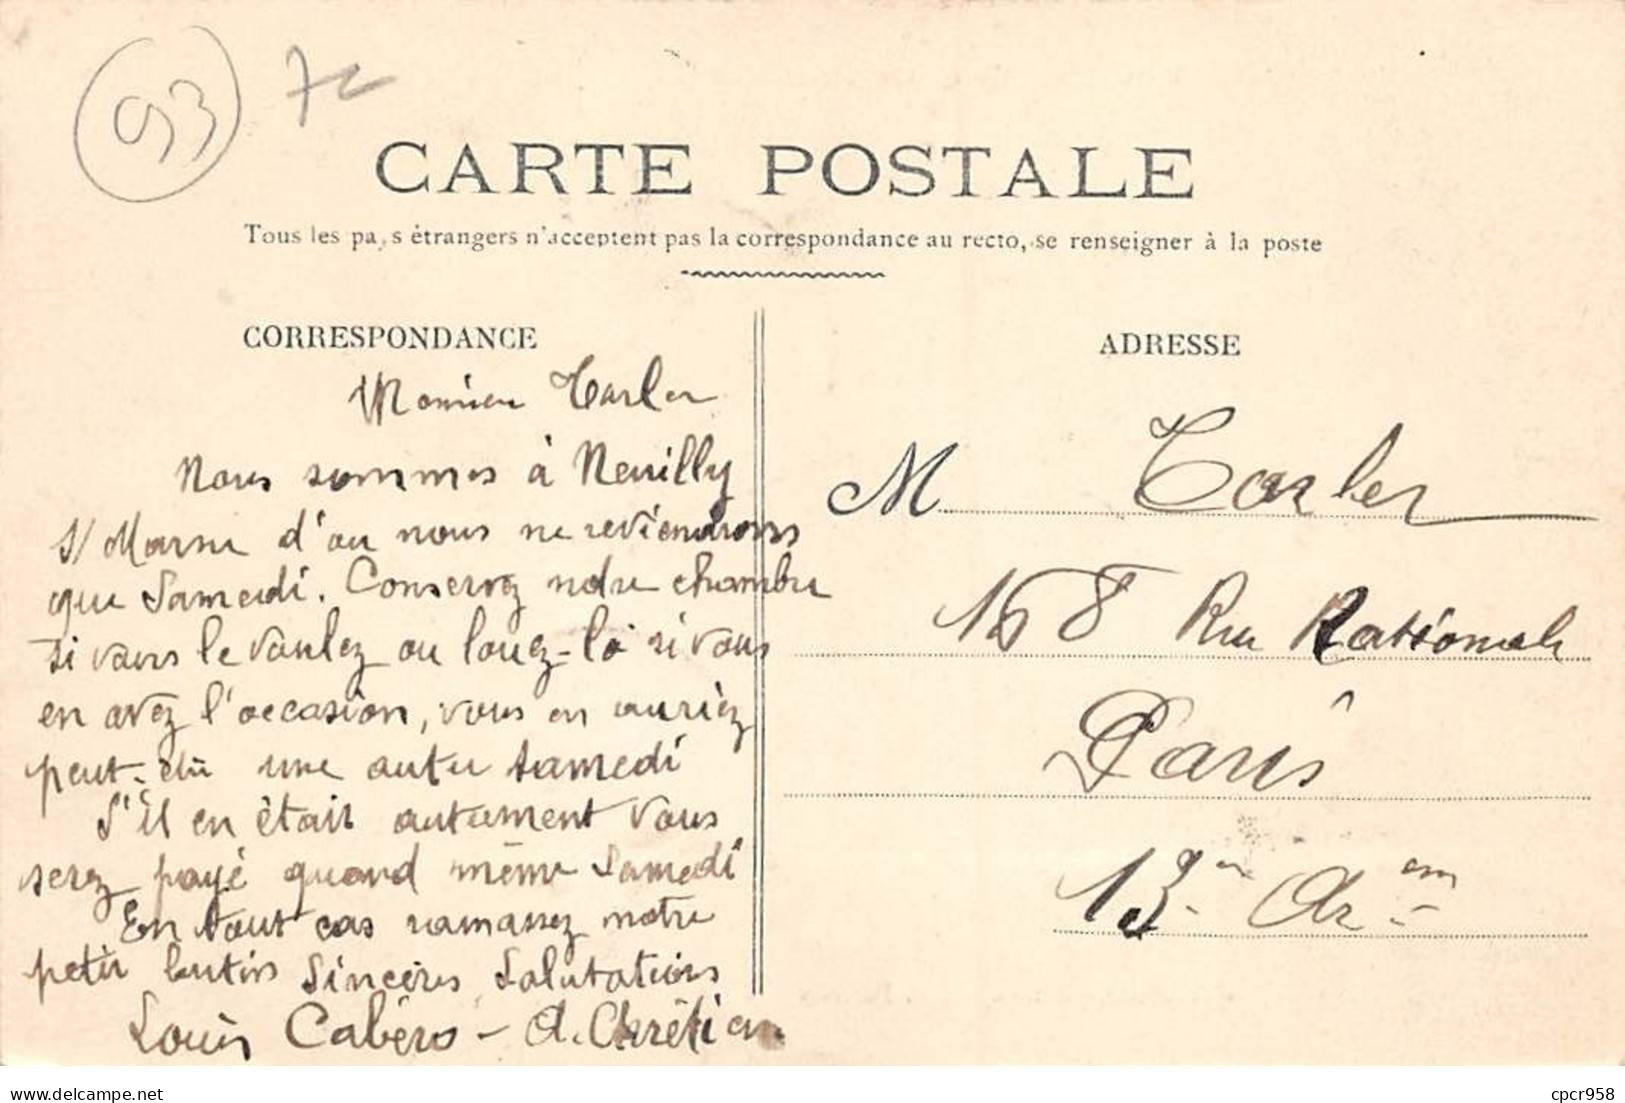 93
CARTE POSTALE
Tous les pays étrangers n'acceptent pas la correspondance au recto, se renseigner à la poste
CORRESPONDANCE
Monsieur Carler
Nous sommes à Neuilly
s/ Marne d'ou nous ne reviendrons
que Samedi. Conservez notre chambre
si vous le voulez ou louez-là si vous
en avez l'occasion, vous en auriez
peut-être une autre samedi
S'il en était autrement vous
serez payé quand même Samedi
En tout cas ramassez notre
petit butin Sincères Salutations
Louis Cabéro - A. Chrétien
ADRESSE
M Carler
168 Rue Nationale
Paris
13en Ar em
delcampe.net
cpcr958